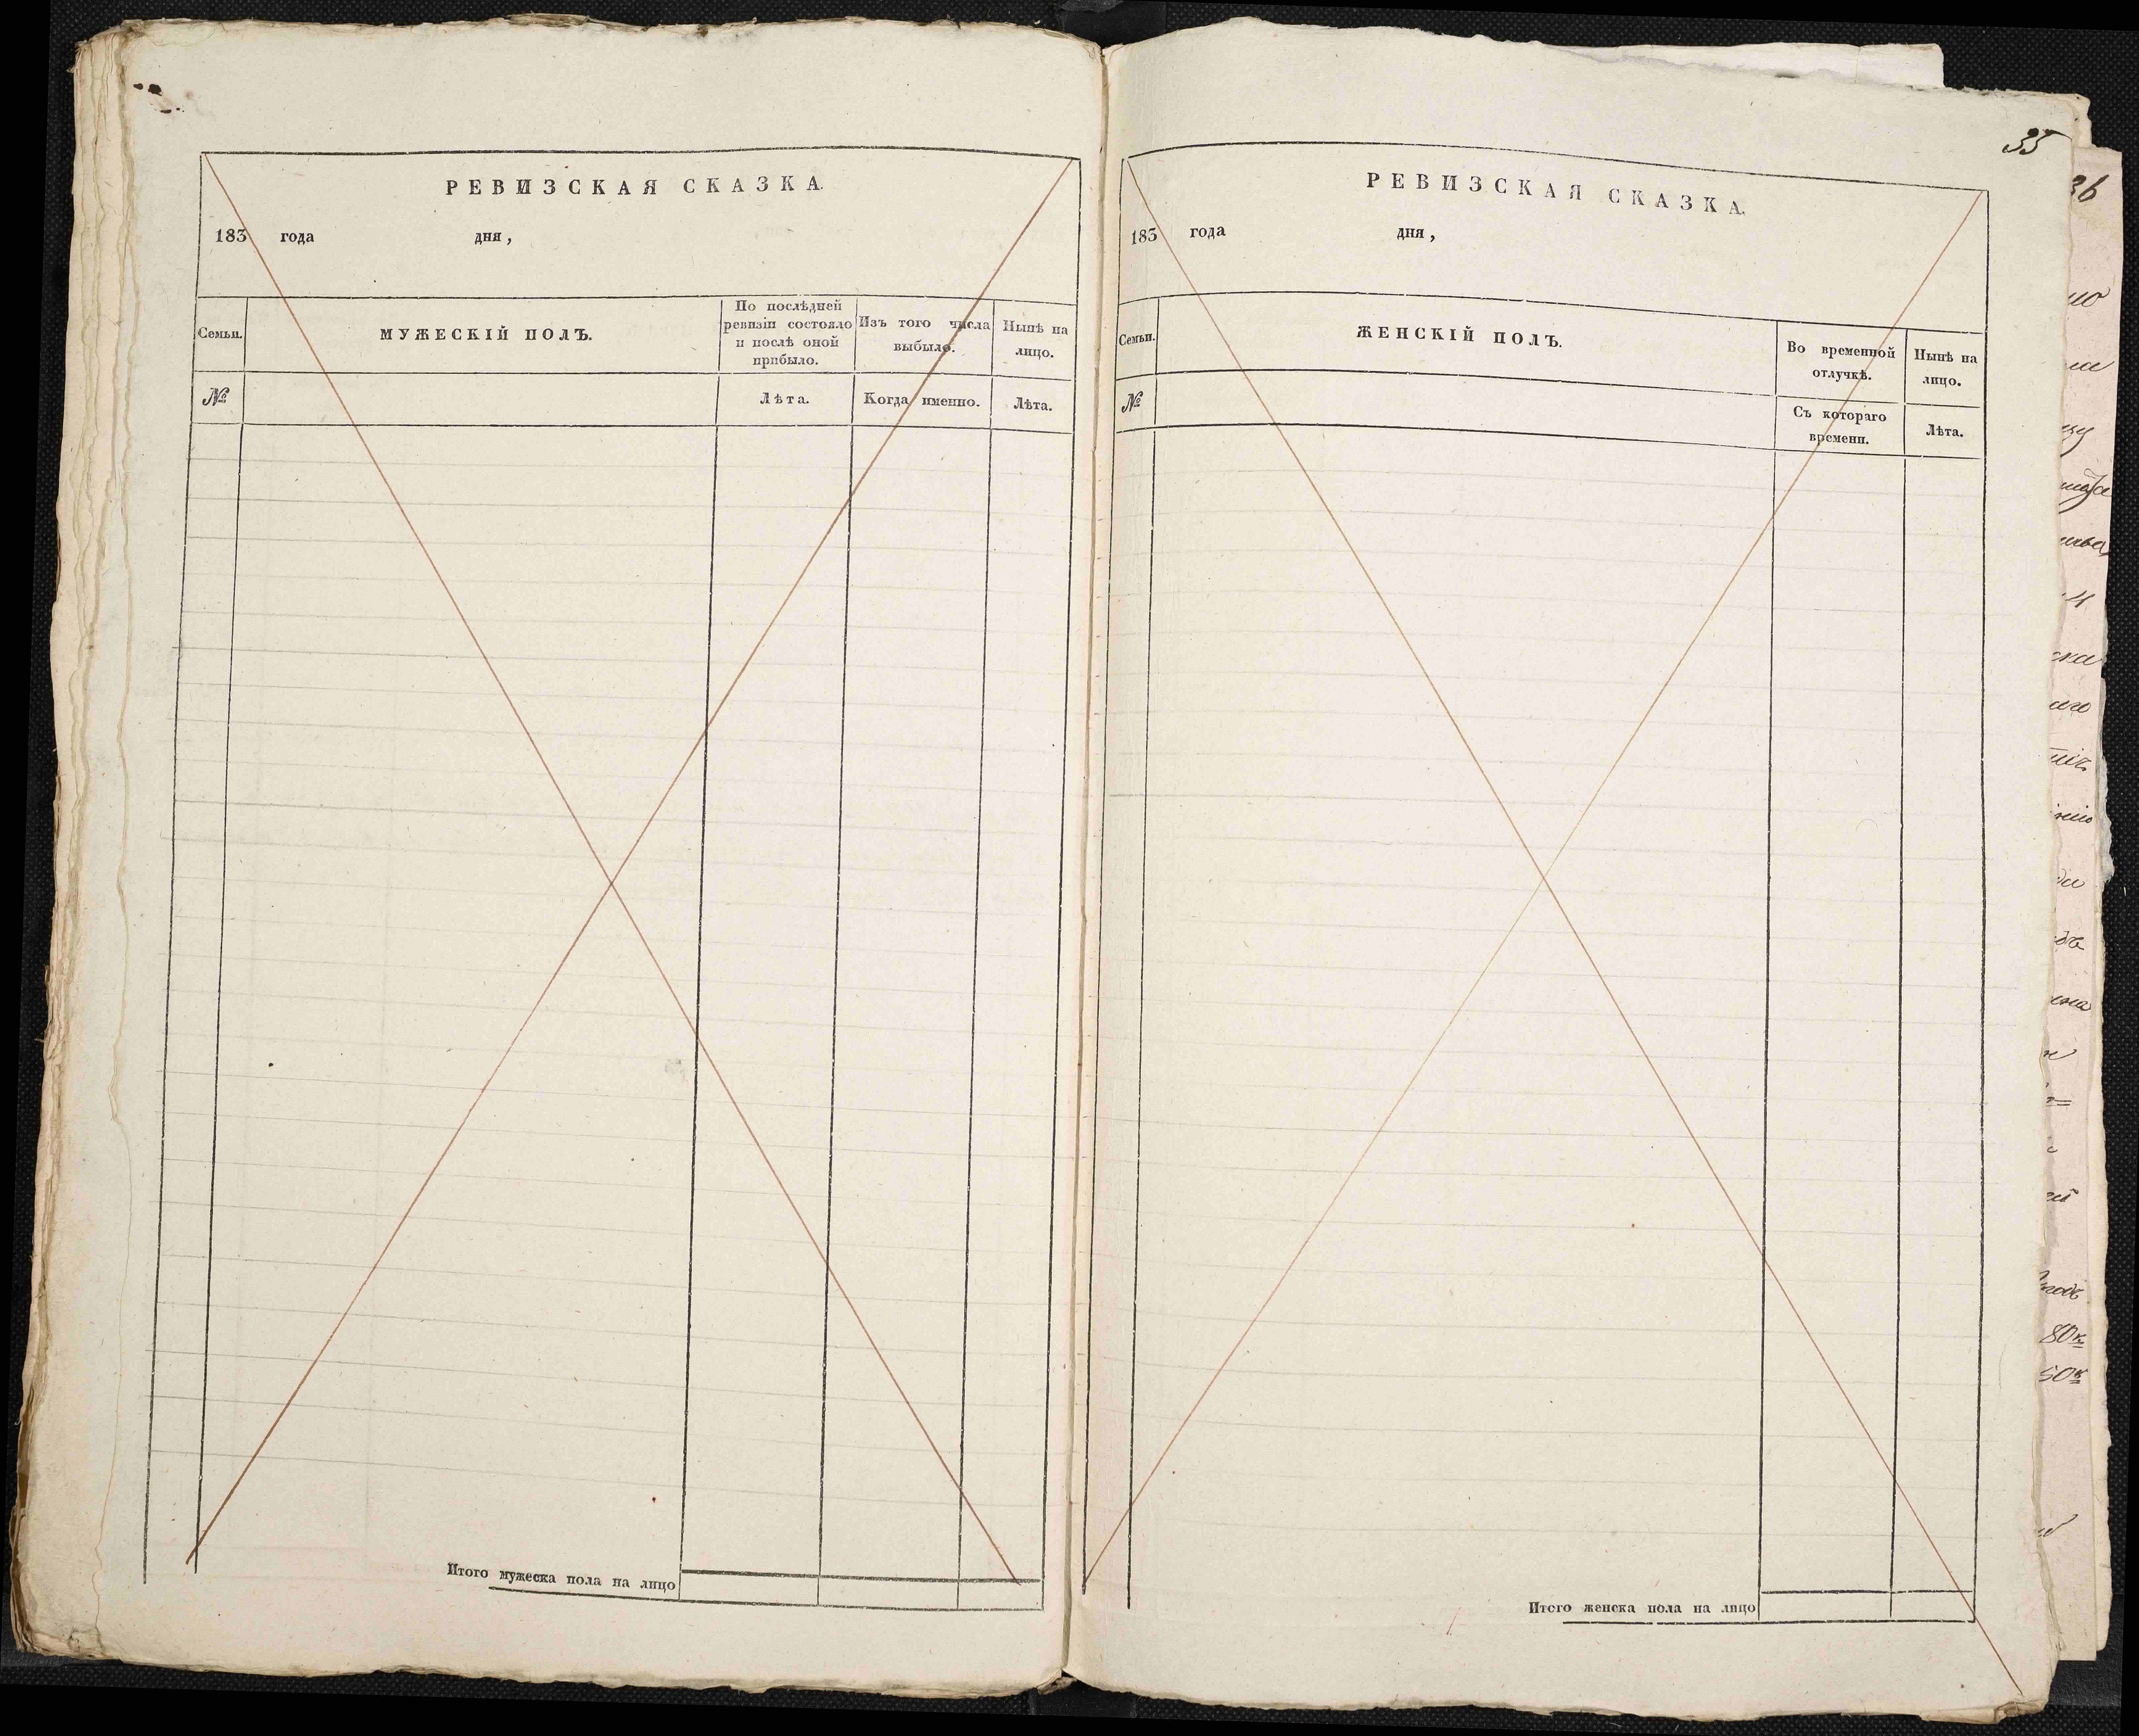 РЕВИЗСКАЯ СКАЗКА.
183 года дня,
Семьи.
МУЖЕСКІЙ ПОЛЪ.
По послѣдней
ревизіи состояло
и послѣ оной
прибыло.
Изъ того числа
выбыло.
Нынѣ на
лицо.
№
Лѣта.
Когда именно.
Лѣта.
Итого мужеска пола на лицо
35
РЕВИЗСКАЯ СКАЗКА.
183 года дня,
Семьи.
ЖЕНСКІЙ ПОЛЪ.
Во временной
отлучкѣ.
Нынѣ на
лицо.
№
Съ котораго
времени.
Лѣта.
Итого женска пола на лицо
36
80к
50к